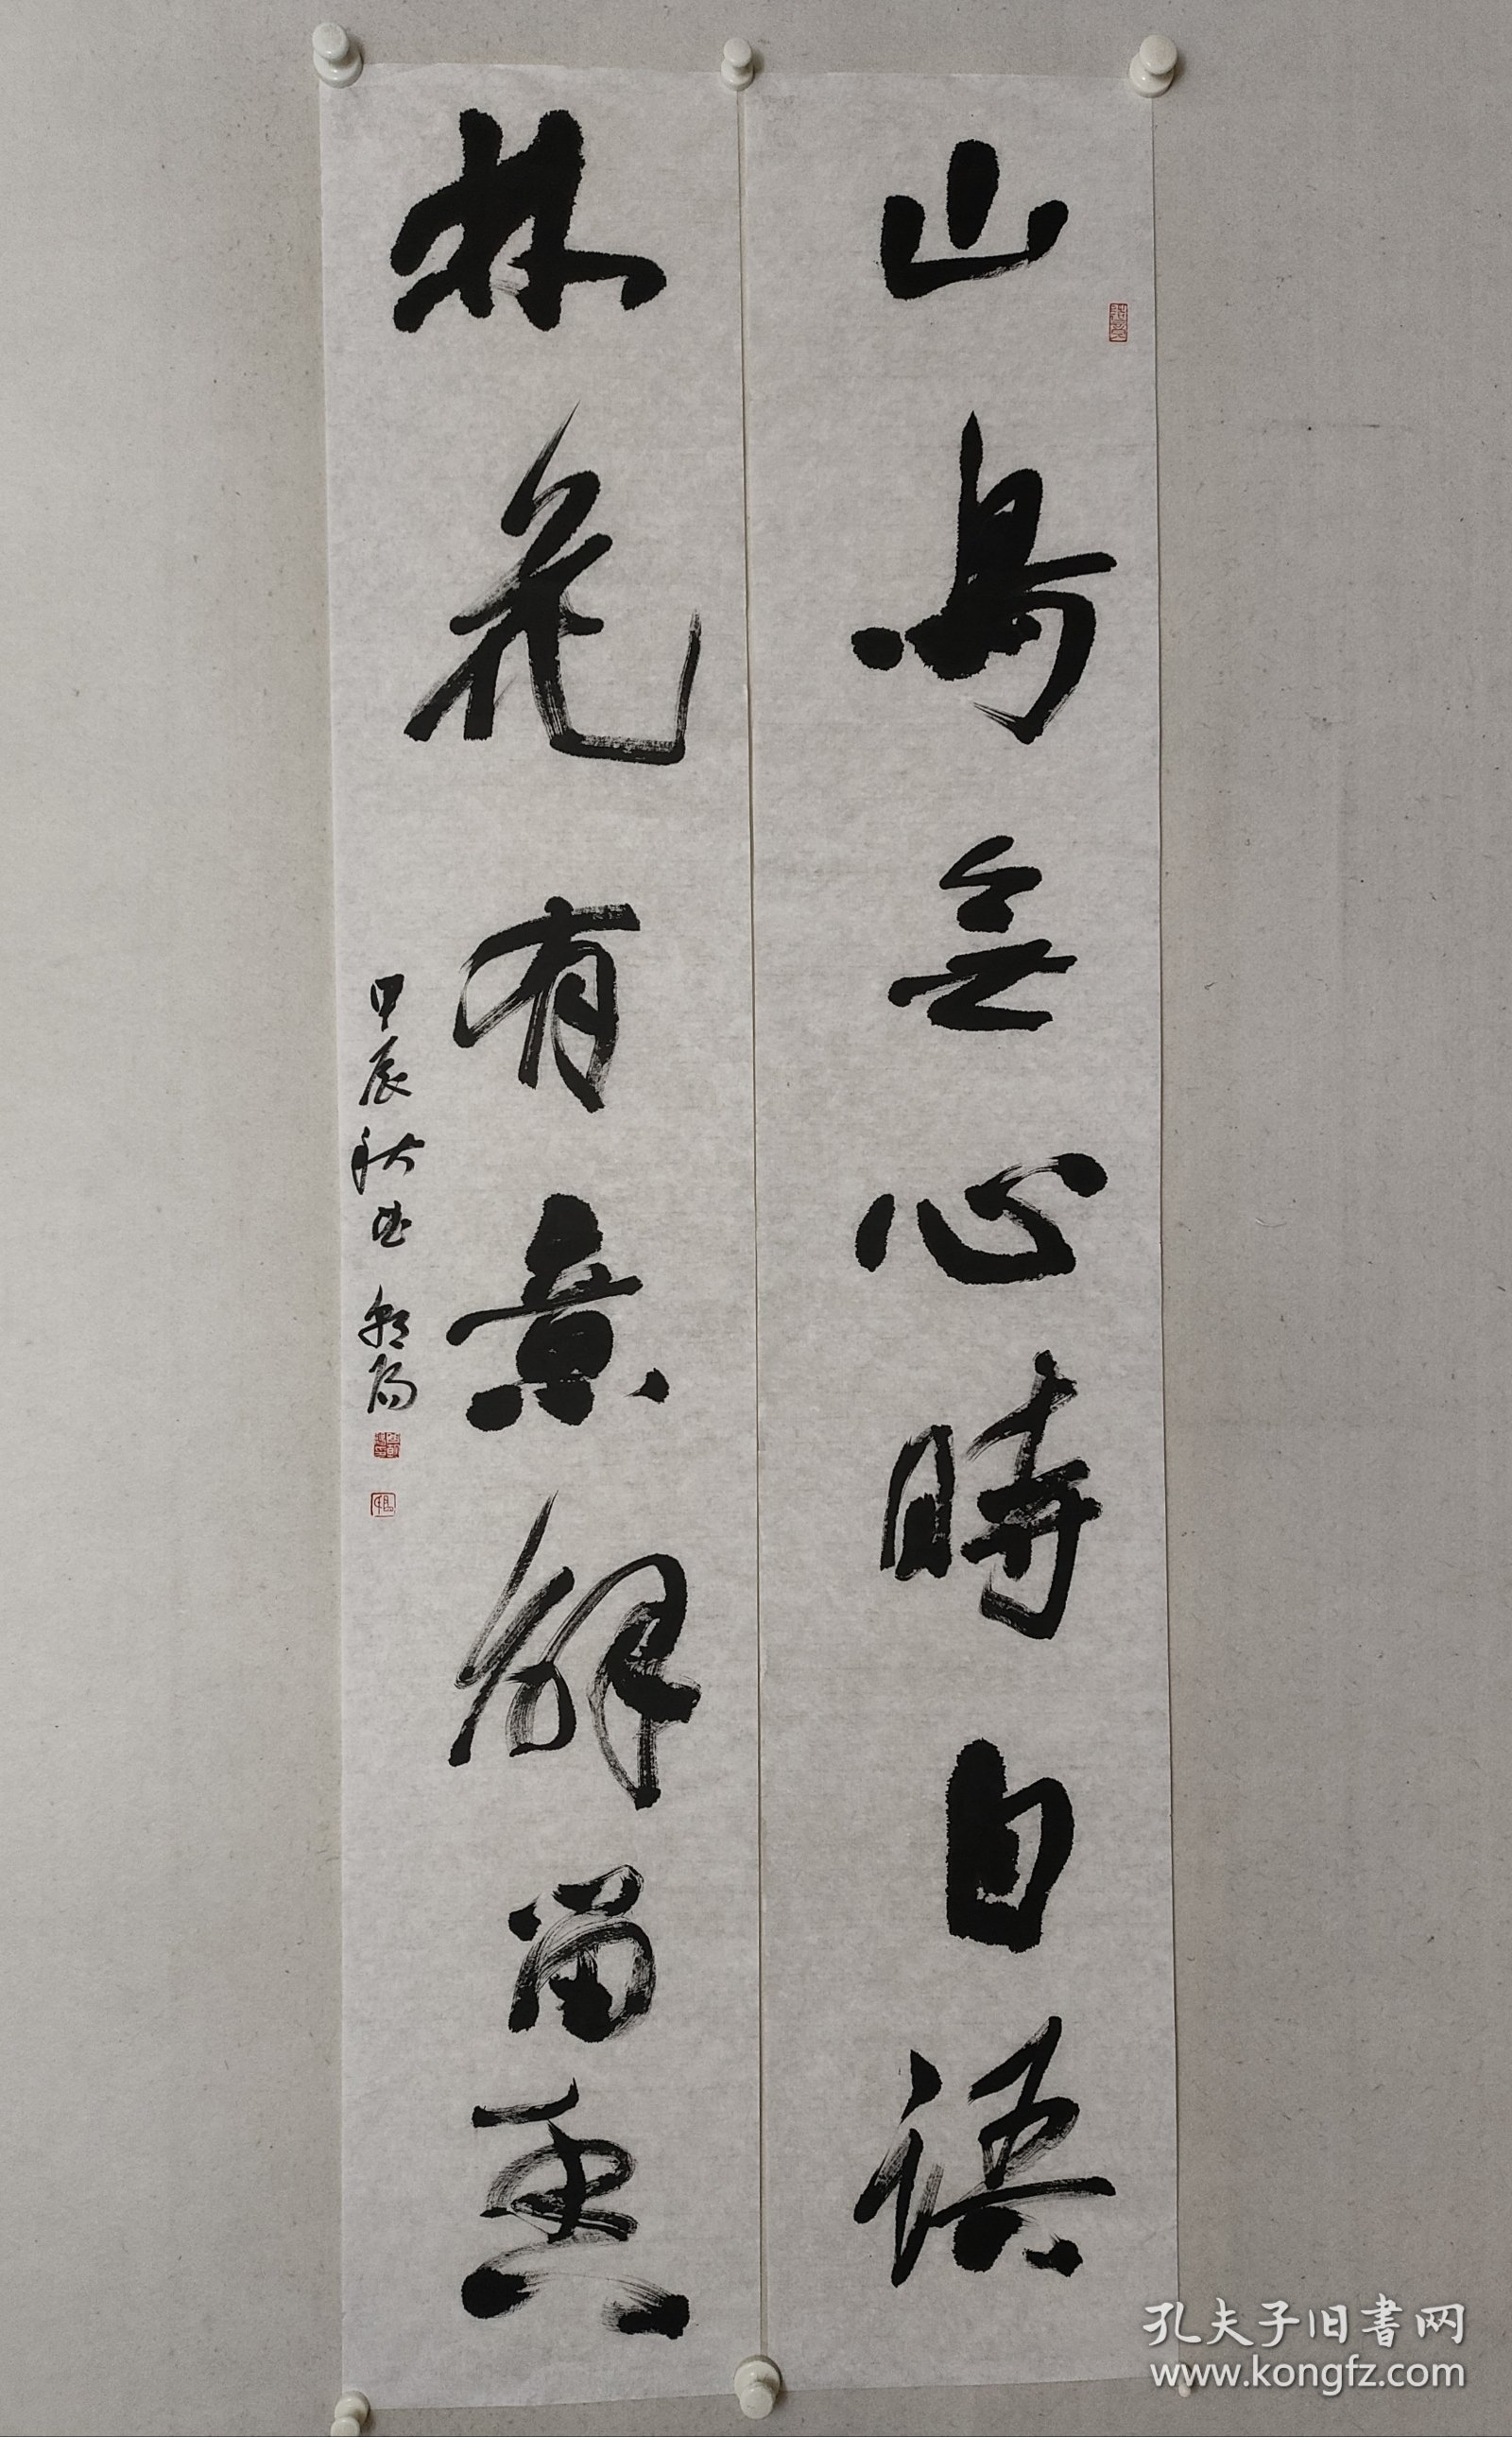 山鳥無心時自語
林花有意解留香
甲辰秋書
孔夫子旧書网
www.kongfz.com